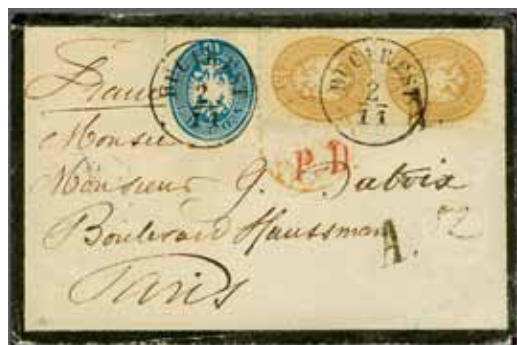 BUCUREST
2
11
BUCUREST
2
11
France
P.D.
Monsieur
Monsieur G.
Boulevard Haussman
A.
Paris